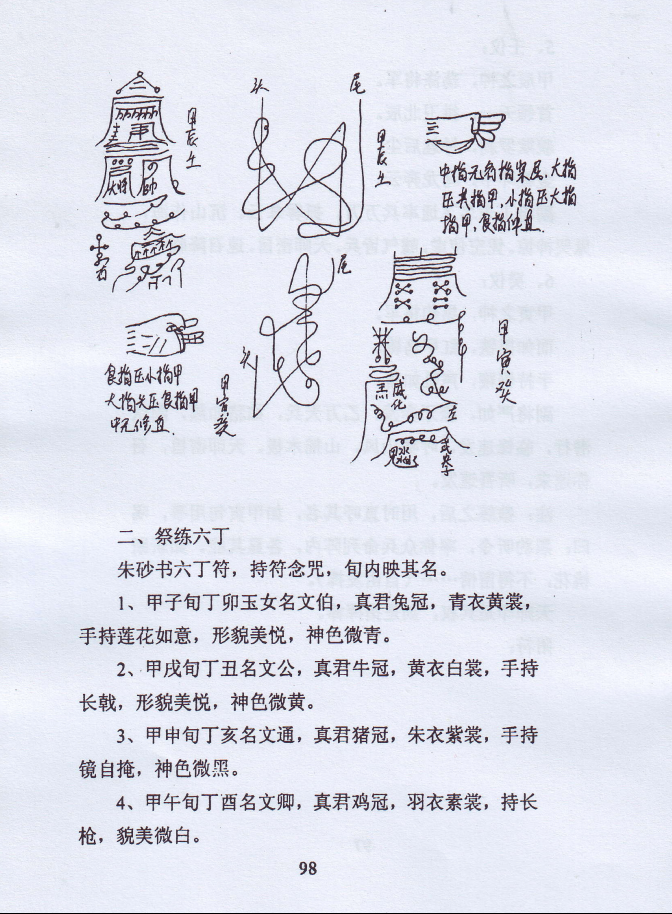 头
尾
甲辰壬
甲辰壬
三
中指无名指屈,大指
压其指甲,小指压大指
指甲,食指伸直
尾
头
食指压小指甲
大指尖压食指甲
甲寅癸
甲寅癸
威化
二、祭练六丁
朱砂书六丁符,持符念咒,旬内映其名。
1、甲子旬丁卯玉女名文伯,真君兔冠,青衣黄裳,
手持莲花如意,形貌美悦,神色微青。
2、甲戌旬丁丑名文公,真君牛冠,黄衣白裳,手持
长戟,形貌美悦,神色微黄。
3、甲申旬丁亥名文通,真君猪冠,朱衣紫裳,手持
镜自掩,神色微黑。
4、甲午旬丁酉名文卿,真君鸡冠,羽衣素裳,持长
枪,貌美微白。
98